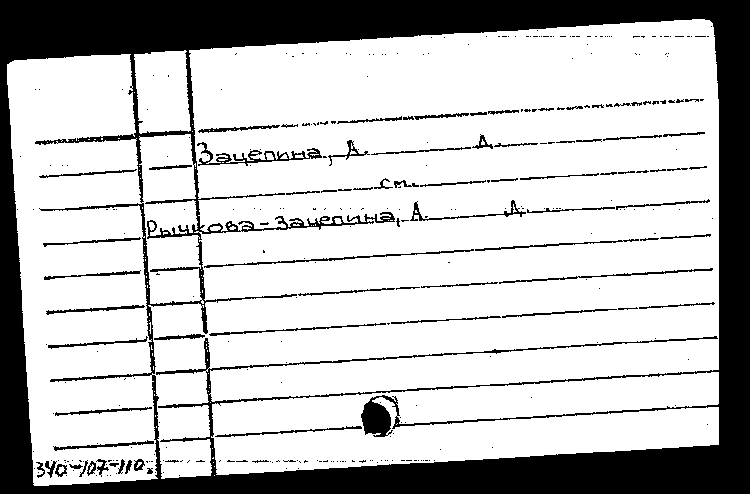 Зацепина, А. Д.
см.
Рычкова-Зацепина, А. Д.
340-107-110.